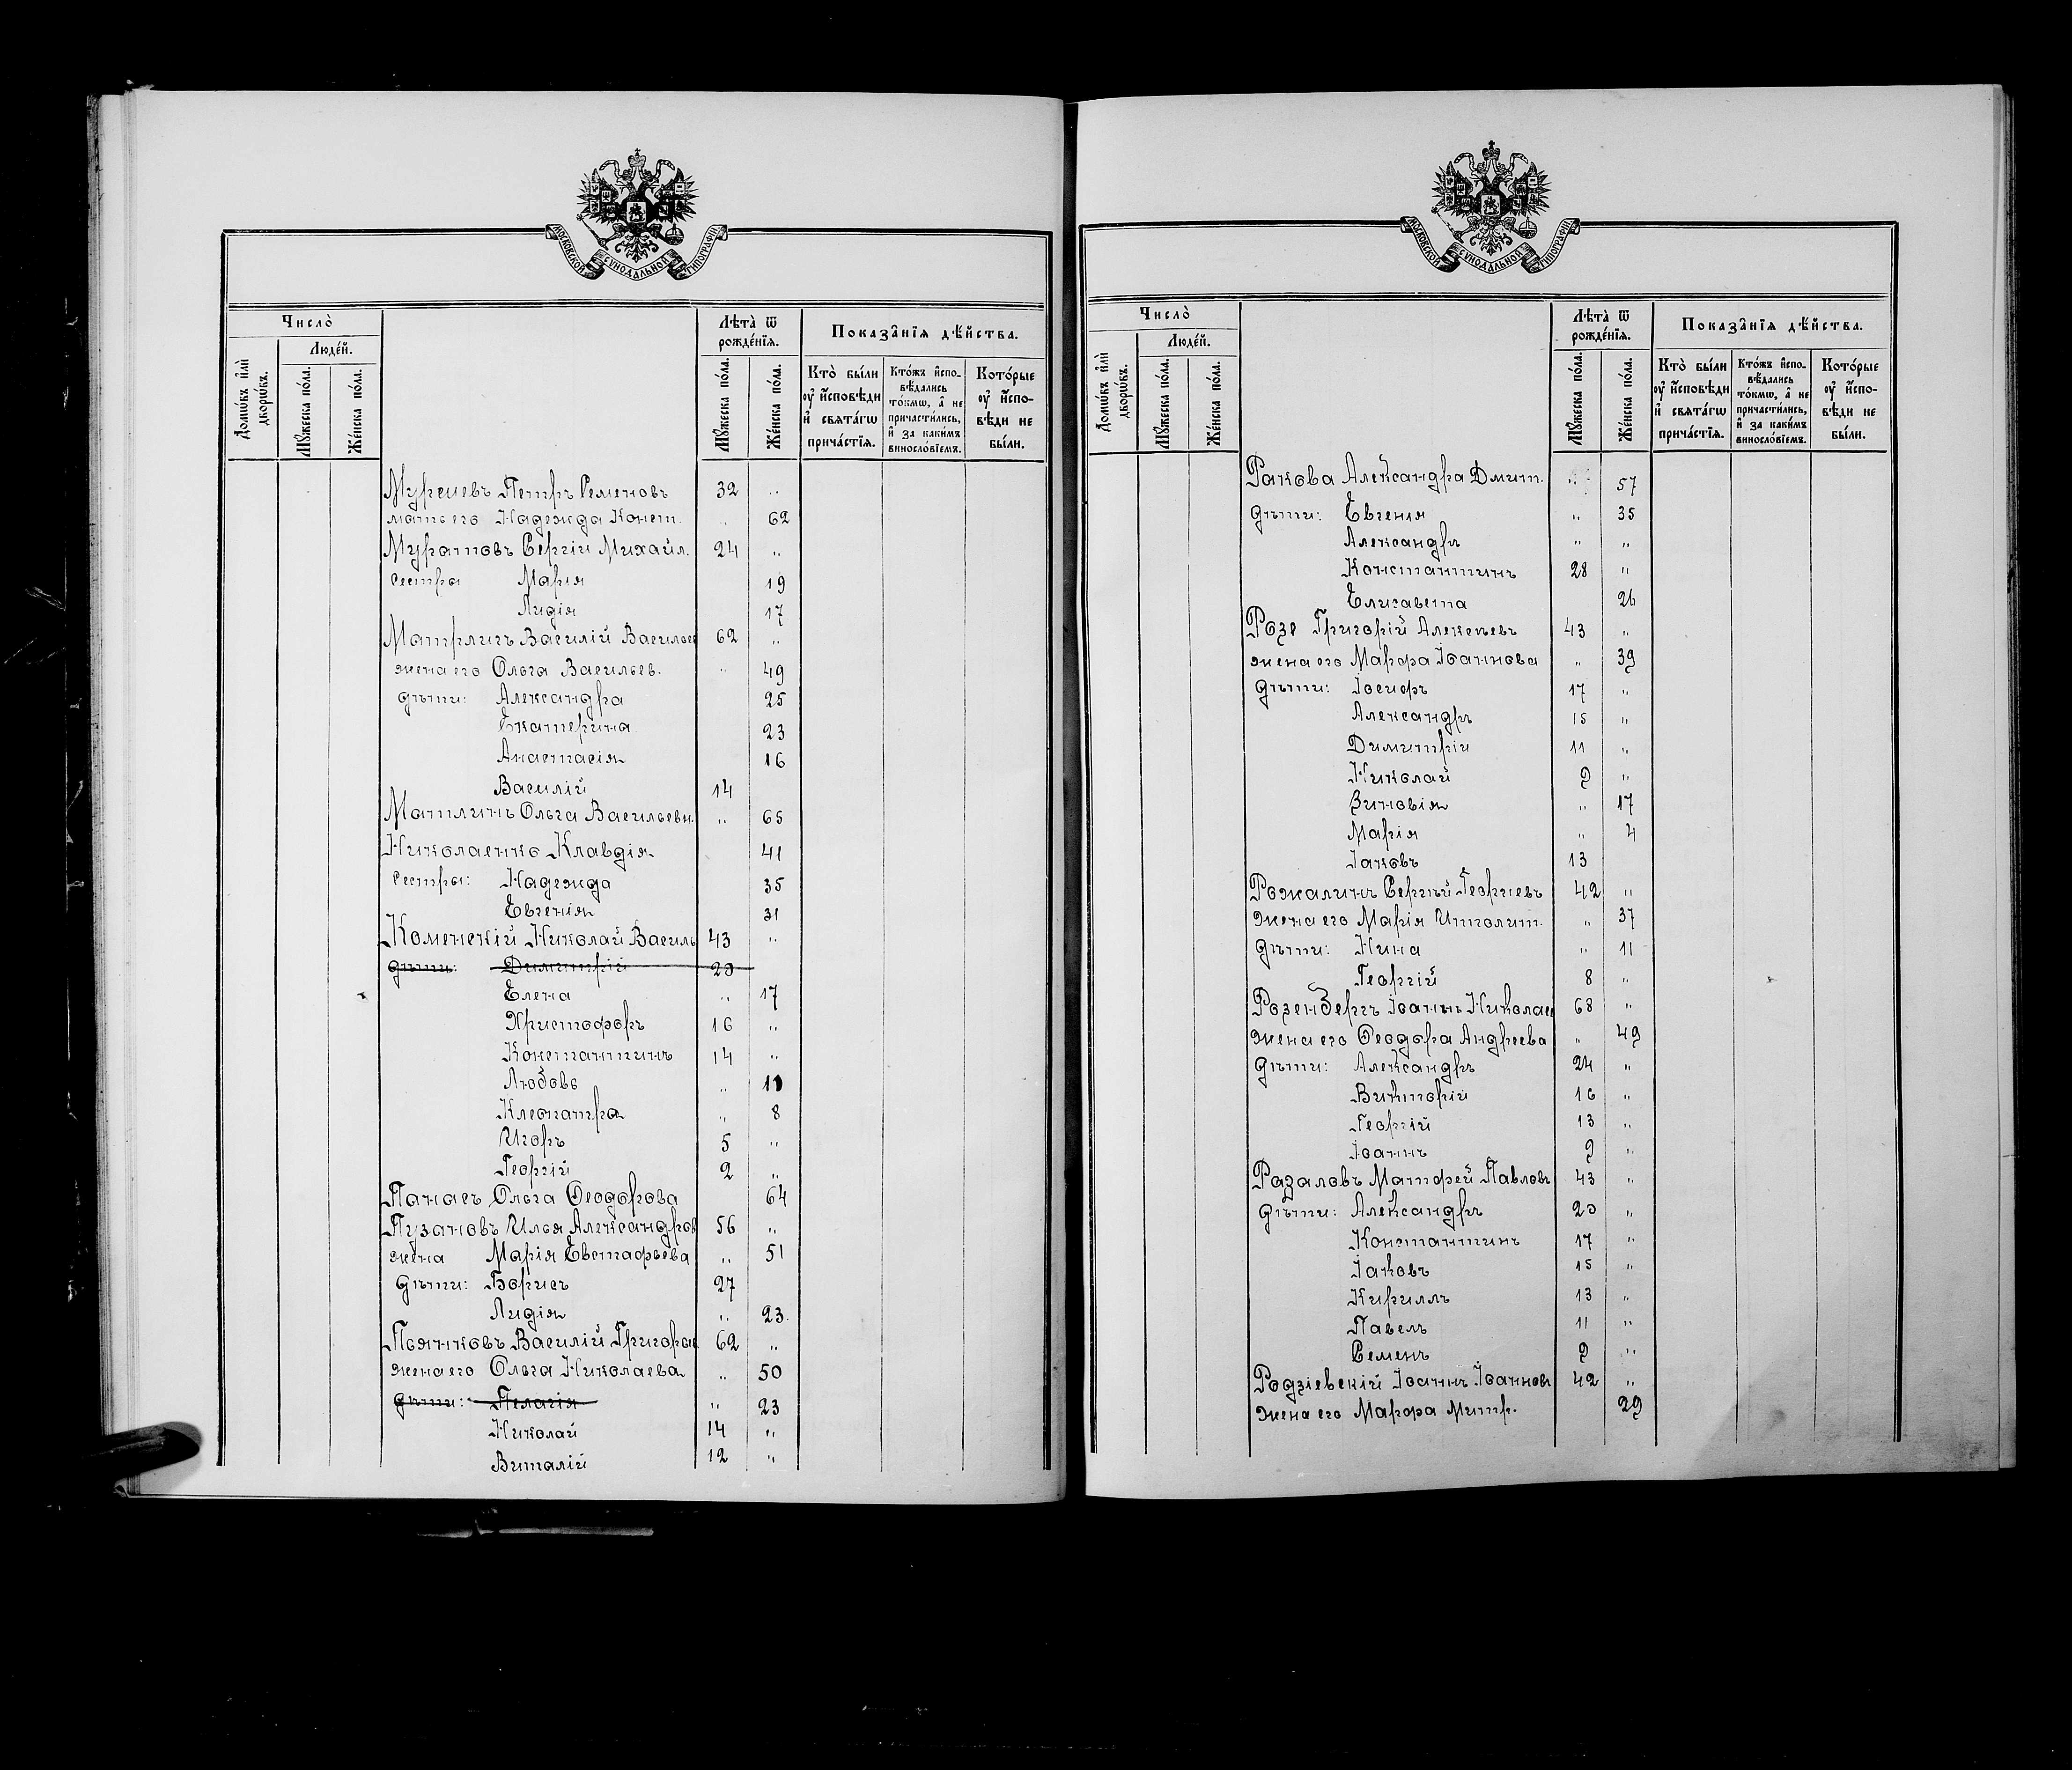 МОСКОВСКОЙ СУНОДАЛЬНОЙ ТИПОГРАФІИ.
Число̀
Люде́й.
Домѡ́въ и҆лѝ дворѡ́въ.
Мꙋ́жеска по́ла.
Же́нска по́ла.
Лѣта̀ ѿ рожде́нїѧ.
Мꙋ́жеска по́ла.
Же́нска по́ла.
Показа̑нїѧ дѣ́йства.
Кто̀ бы́ли оу҆ и҆́сповѣди и҆ свѧта́гѡ прича́стїѧ.
Кто́жъ и҆спо-
вѣ́дались то́кмѡ, а҆ не причасти́лись, и҆ за каки́мъ виносло́вїемъ.
Кото́рые оу҆ и҆́спо-
вѣди не бы́ли.
Петръ Семеновъ 32 „
мать его Надежда Конст. „ 62
Муратовъ Сергій Михайл. 24 „
сестры Марія 19
Лидія 17
Василій Васильев 62 „
жена его Ольга Васильев. „ 49
дѣти: Александра 25
Екатерина 23
Анастасія 16
Василій 14
Матлинъ Ольга Васильевн. „ 65
Николаенко Клавдія 41
Сестры: Надежда 35
Евгенія 31
Коменскій Николай Василь 43 „
дѣти: Димитрій 20
Елена „ 17
Христофоръ 16 „
Константинъ 14 „
Любовь „ 11
Клеопатра „ 8
Игорь 5 „
Георгій 2 „
Панасъ Ольга Ѳеодорова 64
Пузановъ Илья Александров 56 „
жена Марія Евстафьева „ 51
дѣти: Борисъ 27
Лидія „ 23.
Василій Григорьев 62 „
жена его Ольга Николаева „ 50
дѣти: Пелагія „ 23
Николай 14 „
Виталій 12 „
МОСКОВСКОЙ СУНОДАЛЬНОЙ ТИПОГРАФІИ.
Число̀
Люде́й.
Домѡ́въ и҆лѝ дворѡ́въ.
Мꙋ́жеска по́ла.
Же́нска по́ла.
Лѣта̀ ѿ рожде́нїѧ.
Мꙋ́жеска по́ла.
Же́нска по́ла.
Показа̑нїѧ дѣ́йства.
Кто̀ бы́ли оу҆ и҆́сповѣди и҆ свѧта́гѡ прича́стїѧ.
Кто́жъ и҆спо-
вѣ́дались то́кмѡ, а҆ не причасти́лись, и҆ за каки́мъ виносло́вїемъ.
Кото́рые оу҆ и҆́спо-
вѣди не бы́ли.
Ракова Александра Дмит. „ 57
дѣти: Евгенія „ 35
Александръ „ „
Константинъ 28 „
Елисавета 26
Розе Григорій Алексѣевъ 43 „
жена его Марфа Іоаннова „ 39
дѣти: Іосифъ 17 „
Александръ 15 „
Димитрій 11 „
Николай 9 „
Зиновія „ 17
Марія „ 4
Іаковъ 13
Рожалинъ Сергѣй Георгіевъ 42 „
Жена его Марія Ипполит. „ 37
дѣти: Нина „ 11
Георгій 8 „
Розенбергъ Іоаннъ Николаев 68 „
жена его Ѳеодора Андреева „ 49
дѣти: Александръ 24 „
Викторій 16 „
Георгій 13 „
Іоаннъ 9 „
Разаловъ Матфей Павловъ 43 „
дѣти: Александръ 20 „
Константинъ 17 „
Іаковъ 15 „
Кириллъ 13 „
Павелъ 11 „
Семенъ 9 „
Родзіевскій Іоаннъ Іоаннов 42 „
жена его Марфа Митр. 29